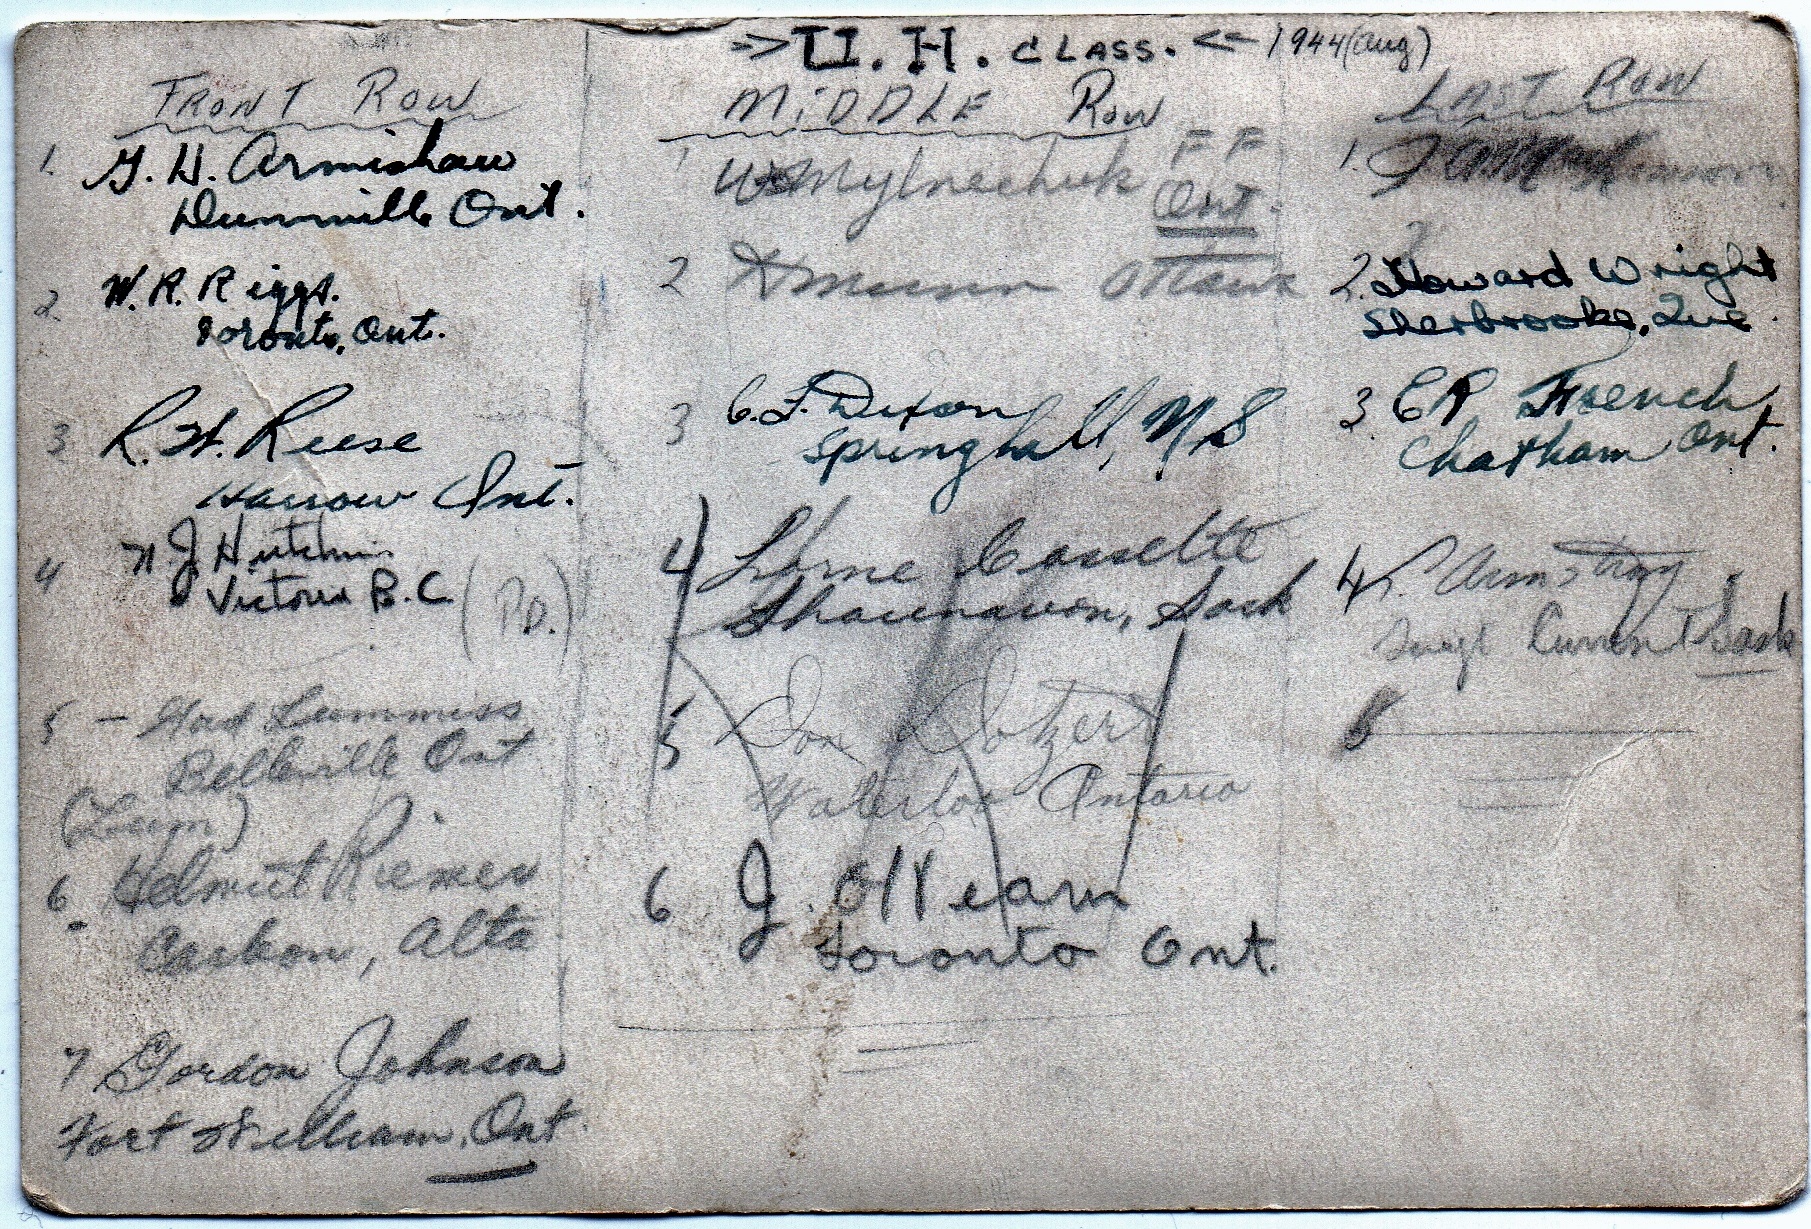 => U. H. CLASS. <= 1944 (Aug)
FRONT ROW
1. G. H. Armishaw
Dunnville Ont.
2. W. R. Riggs.
Toronto, Ont.
3 R. H. Reese
Harrow Ont.
4 N J Hutchins
Victoria B.C (P.D.)
5 - Gord Lummiss
Belleville Ont
(Lum)
6 - Helmut Riemer
Carbon, Alta
7 Gordon Johnson
Fort William, Ont.
MIDDLE ROW
1 W Mylnechuk FF
Ont.
2 Munn Ottawa
3 C. F. Dixon
Springhill, N S
4 Lorne Cossette
Shaunavon, Sask
5 Don Dotzert
Waterloo Ontario
6 J. O'Hearn
Toronto Ont.
LAST ROW
1.
2. Howard Wright
Sherbrooke, Que.
3. E R French,
Chatham Ont.
4 Armstrong
Swift Current Sask